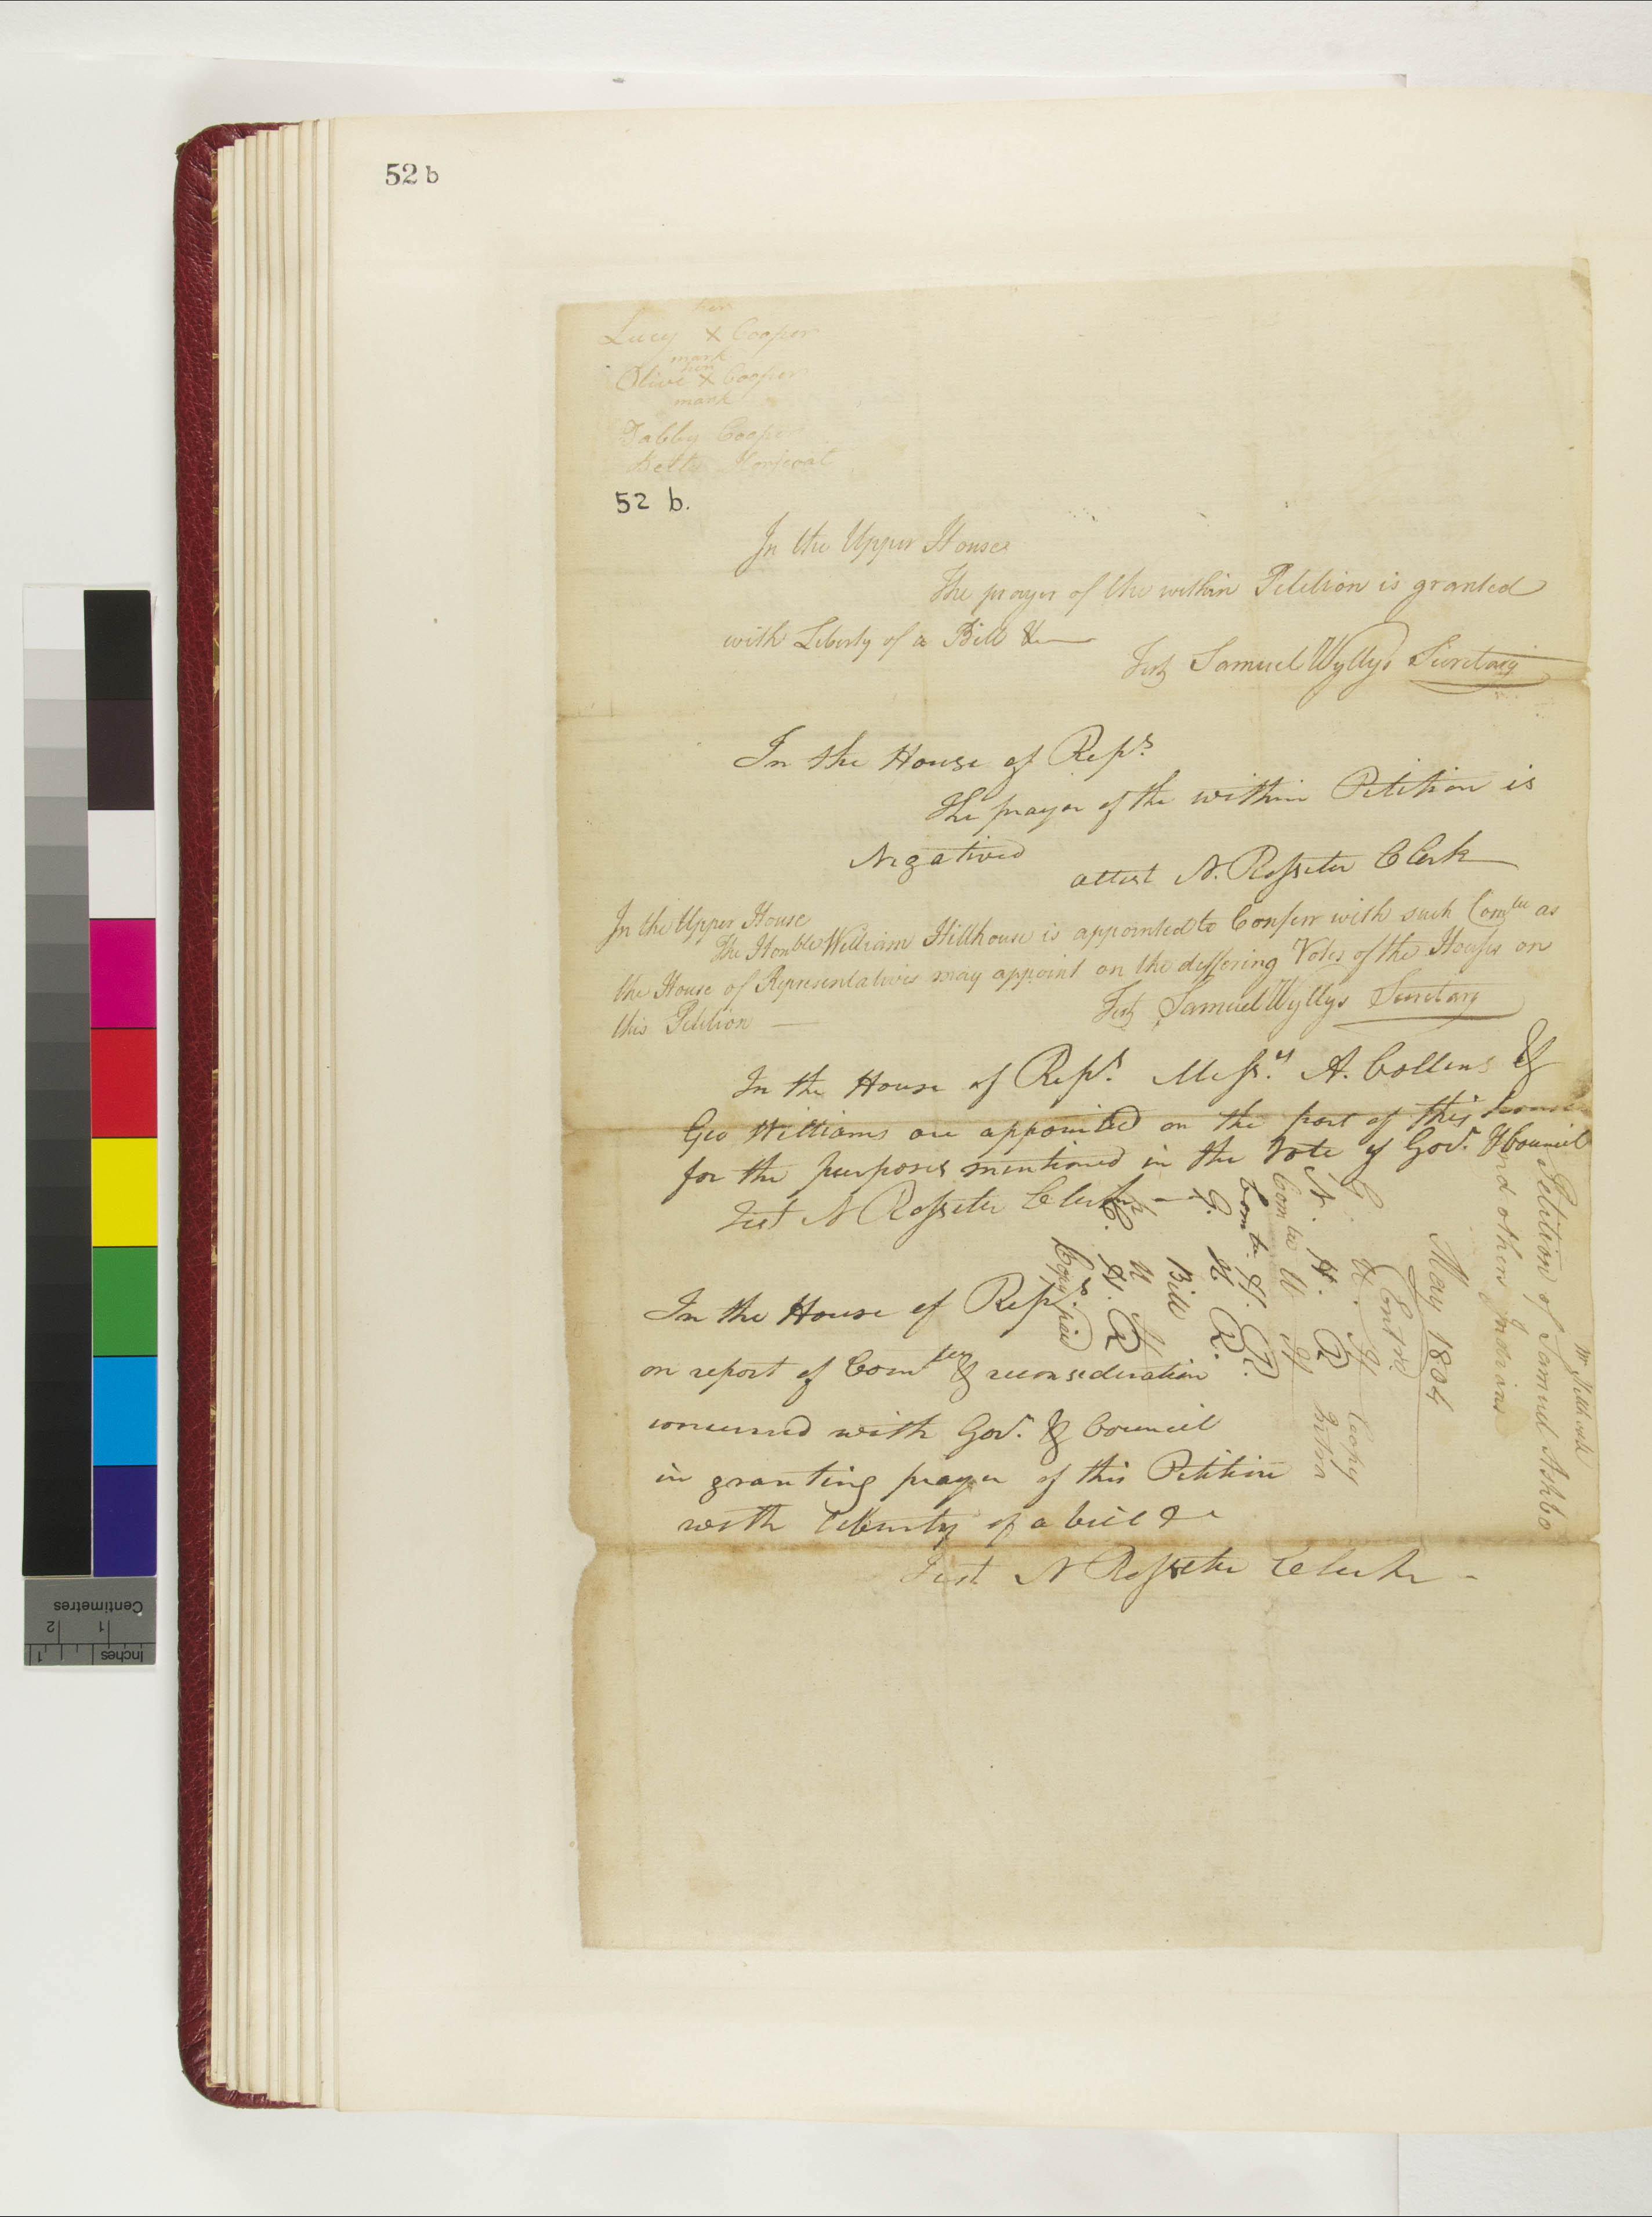 52 b
her
Lucy X Cooper
mark
her
Olive X Cooper
mark
Tabby Cooper
52 b.
In the Upper House
The prayer of the within Petition is granted
with Liberty of a Bill &c
Test Samuel Wyllys Secretary
In the House of Reps
The prayer of the within Petition is
Negatived
attest N. Rosseter Clerk
In the Upper House
The Honble William Hillhouse is appointed to Conferr with such Comtee as
the House of Representatives may appoint on the differing Votes of the Houses on
this Petition —
Test Samuel Wyllys Secretary
In the House of Reps. Messrs A. Collens &
Geo Williams are appointed on the part of this house
for the purposes mentioned in the Vote of Govr. & Council
Test N Rosseter Clerk —
In the House of Reps.
on report of Comtee & reconsideration
concurred with Govr. & Council
in granting prayer of this Petition
with liberty of a bill &c
Test N Rosseter Clerk -
Petition of Samuel Ashbo
and others Indians
May 1804
Entrd
G. U. H
Copy
N. H. R
Comtee U H
Comtee H. R.
G. H R.
Bill
U H
C. H. R
Copy
Centimetres
1 2
Inches
1